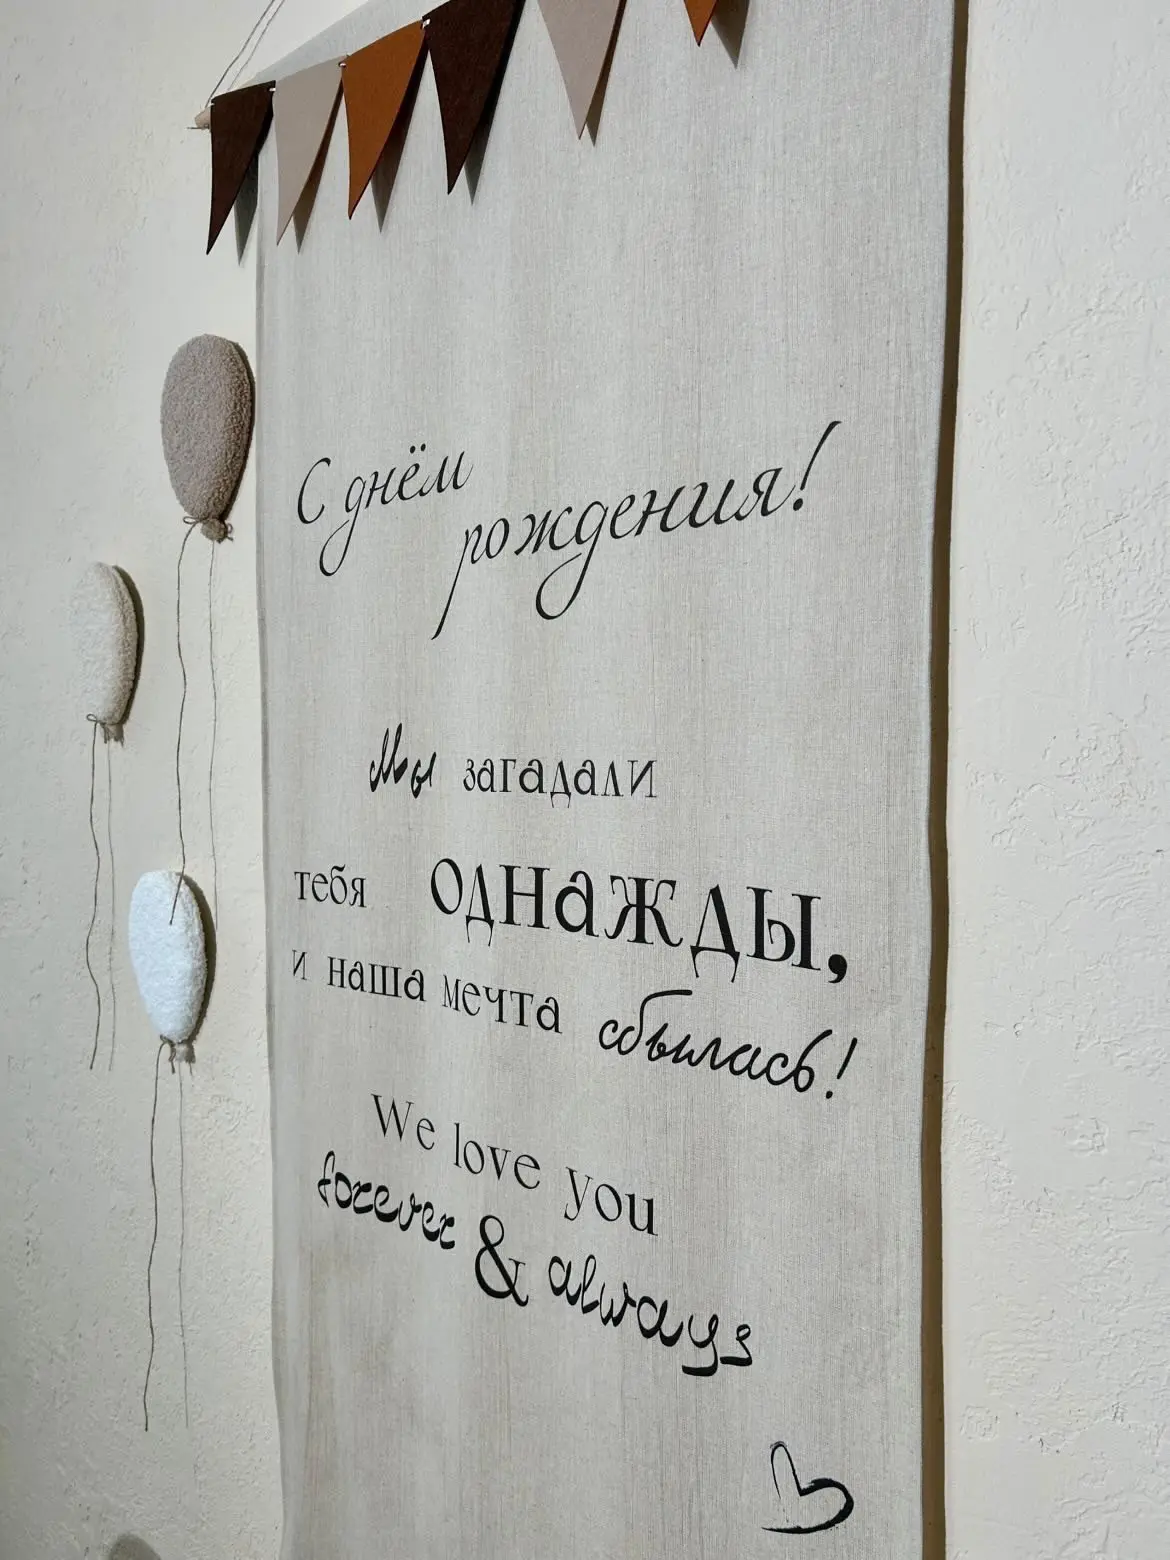 С днём
рождения!
Мы загадали
тебя однажды,
и наша мечта сбылась!
We love you
forever & always